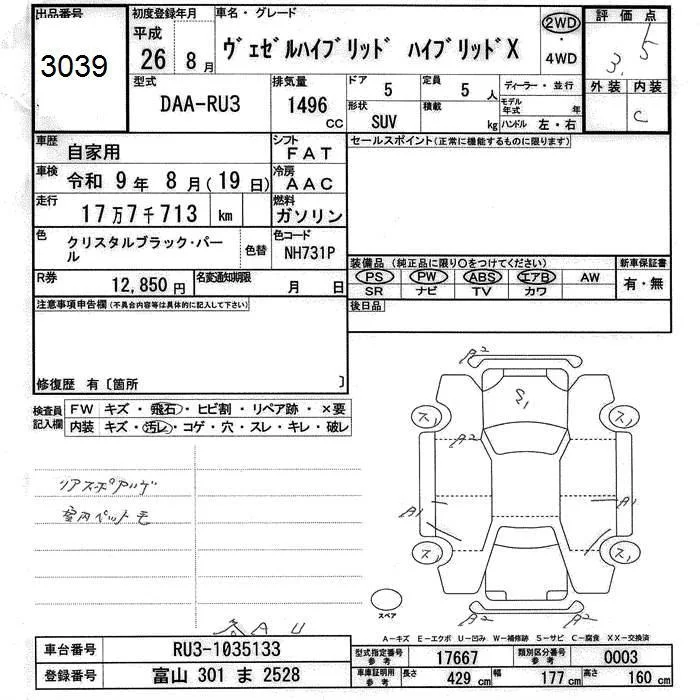 出品番号 初度登録年月 車名・グレード 評価点
3039 平成 26 8月 ヴェゼルハイブリッド ハイブリッドX 2WD・4WD 3.5
外装 内装 C
型式 排気量 ドア 定員 ディーラー・並行
DAA-RU3 1496 CC 5 5人 モデル年式 年
形状 SUV 積載 kg ハンドル 左・右
車歴 自家用 シフト FAT セールスポイント(正常に機能するものに限ります)
車検 令和 9年 8月(19日) 冷房 AAC
走行 17万7千713 km 燃料 ガソリン
色 クリスタルブラック・パール 色替 色コード NH731P
装備品(純正品に限り○をつけてください) 新車保証書
PS PW ABS エアB AW 有・無
SR ナビ TV カワ
R券 12,850円 名変通知期限 月 日
注意事項申告欄(不具合内容等は具体的に記入して下さい) 後日品
修復歴 有〔箇所 〕
検査員記入欄 FW キズ・飛石・ヒビ割・リペア跡・×要
内装 キズ・汚レ・コゲ・穴・スレ・キレ・破レ
A2
S1
ス1 ス1
A2
リアスポアゲ
室内ペットモ
A1 A1
ス1 ス1
スペア
A2 A2
各AU
A-キズ E-エクボ U-凹み W-補修跡 S-サビ C-腐食 XX-交換済
車台番号 RU3-1035133 型式指定番号 参考 17667 類別区分番号 参考 0003
登録番号 富山 301 ま 2528 車庫証明用 参考 長さ 429 cm 幅 177 cm 高さ 160 cm